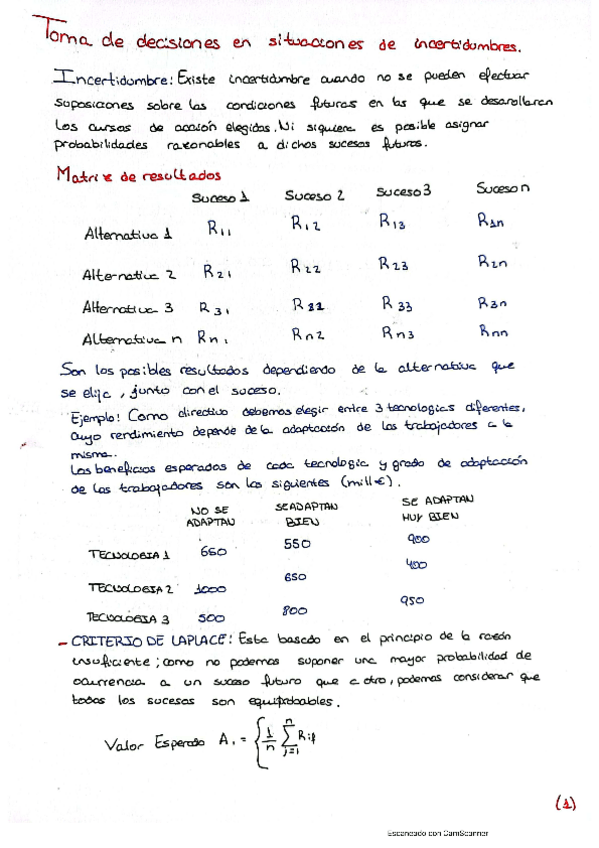 Toma de decisiones en situaciones de incertidumbres.
Incertidumbre: Existe incertidumbre cuando no se pueden efectuar
suposiciones sobre las condiciones futuras en las que se desarollaran
los cursos de acción elegidos. Ni siquiera es posible asignar
probabilidades razonables a dichos sucesos futuros.
Matriz de resultados
Suceso 1 Suceso 2 Suceso 3 Suceso n
Alternativa 1 R11 R12 R13 R1n
Alternativa 2 R21 R22 R23 R2n
Alternativa 3 R31 R32 R33 R3n
Alternativa n Rn1 Rn2 Rn3 Rnn
Son los posibles resultados dependiendo de la alternativa que
se elija, junto con el suceso.
Ejemplo: Como directivo debemos elegir entre 3 tecnologías diferentes,
cuyo rendimiento depende de la adaptación de los trabajadores a la
misma.
Los beneficios esperados de cada tecnología y grado de adaptación
de los trabajadores son los siguientes (mill€).
NO SE ADAPTAN SE ADAPTAN BIEN SE ADAPTAN MUY BIEN
TECNOLOGIA 1 650 550 900
TECNOLOGIA 2 1000 650 400
TECNOLOGIA 3 500 800 950
- CRITERIO DE LAPLACE: Esta basado en el principio de la razón
insuficiente; como no podemos suponer una mayor probabilidad de
ocurrencia a un suceso futuro que a otro, podemos considerar que
todos los sucesos son equiprobables.
Valor Esperado Ai = { 1/n n Σ j=1 Rij
(1)
Escaneado con CamScanner